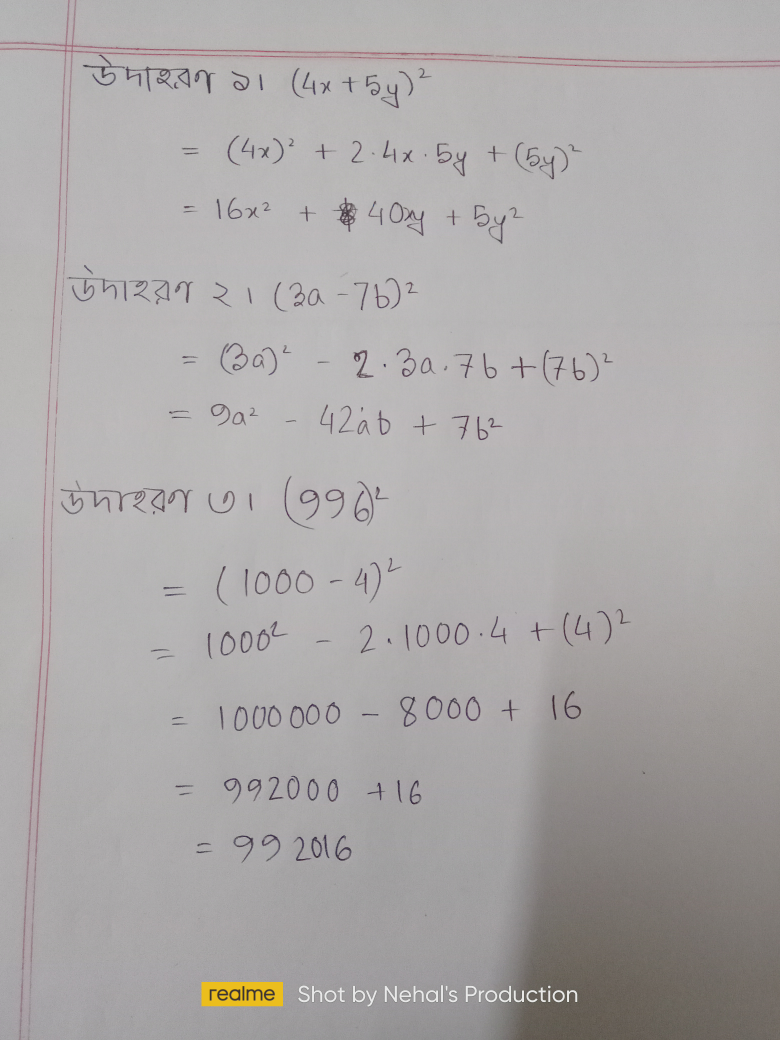 উদাহরণ ১। (4x + 5y)²
= (4x)² + 2·4x·5y + (5y)²
= 16x² + 40xy + 5y²
উদাহরণ ২। (3a - 7b)²
= (3a)² - 2·3a·7b + (7b)²
= 9a² - 42ab + 7b²
উদাহরণ ৩। (996)²
= (1000 - 4)²
= 1000² - 2·1000·4 + (4)²
= 1000000 - 8000 + 16
= 992000 + 16
= 992016
realme Shot by Nehal's Production